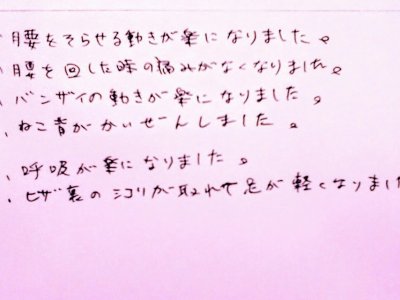 、腰をそらせる動きが楽になりました。
、腰を回した時の痛みがなくなりました。
、バンザイの動きが楽になりました。
、ねこ背がかいぜんしました。
、呼吸が楽になりました。
、ヒザ裏のシコリが取れて足が軽くなりました